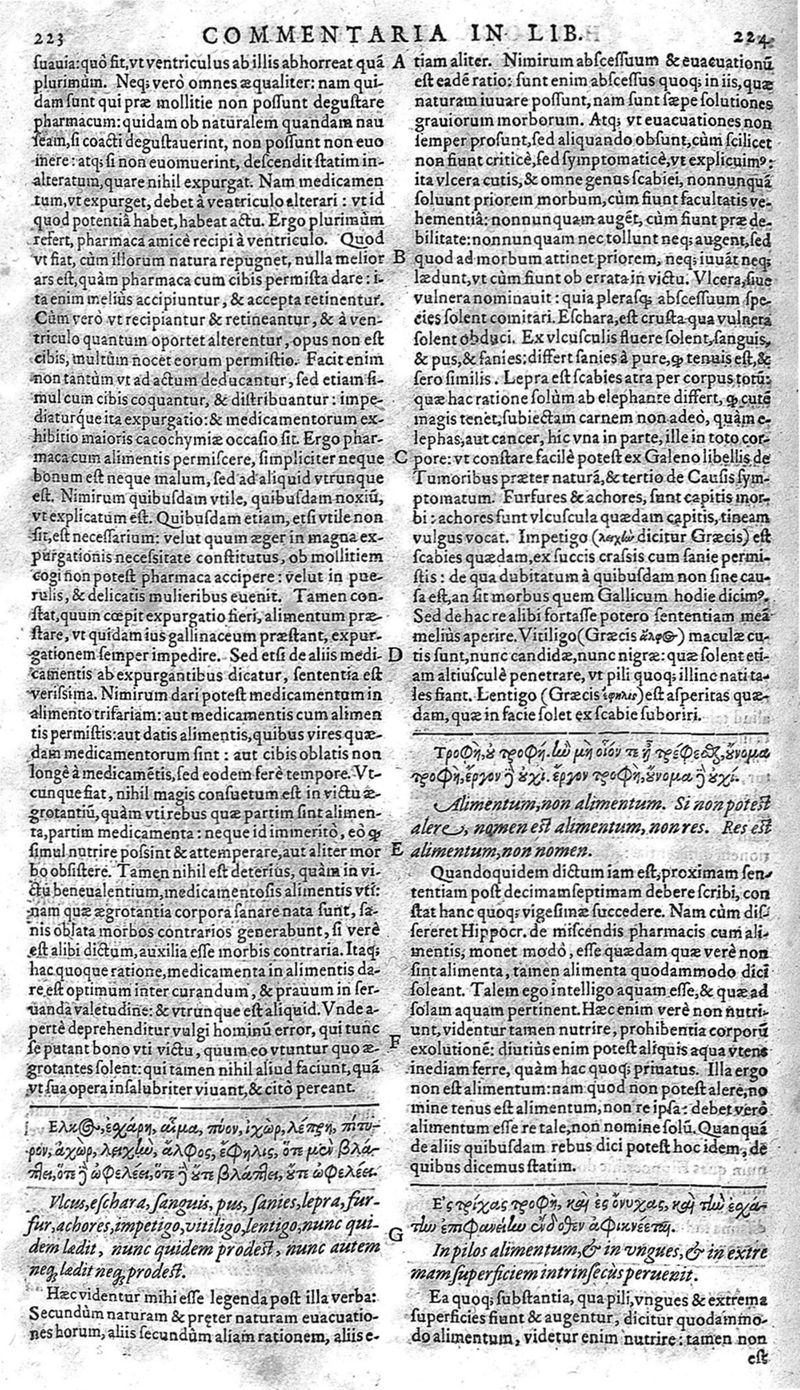 223 COMMENTARIA IN LIB. 224
suauia: quò fit, vt ventriculus ab illis abhorreat quã
plurimum. Neq; verò omnes æqualiter: nam qui-
dam sunt qui præ mollitie non possunt degustare
pharmacum: quidam ob naturalem quandam nau
seam, si coacti degustauerint, non possunt non euo
mere: atq; si non euomuerint, descendit statim in-
alteratum, quare nihil expurgat. Nam medicamen
tum, vt expurget, debet à ventriculo alterari: vt id
quod potentiâ habet, habeat actu. Ergo plurimùm
refert, pharmaca amicè recipi à ventriculo. Quod
vt fiat, cùm illorum natura repugnet, nulla melior
ars est, quàm pharmaca cum cibis permista dare: i-
ta enim meliùs accipiuntur, & accepta retinentur.
Cùm verò vt recipiantur & retineantur, & à ven-
triculo quantum oportet alterentur, opus non est
cibis, multùm nocet eorum permistio. Facit enim
non tantùm vt ad actum deducantur, sed etiam si-
mul cum cibis coquantur, & distribuantur: impe-
diaturq́ue ita expurgatio: & medicamentorum ex-
hibitio maioris cacochymiæ occasio sit. Ergo phar-
maca cum alimentis permiscere, simpliciter neque
bonum est neque malum, sed ad aliquid vtrunque
est. Nimirum quibusdam vtile, quibusdam noxiũ,
vt explicatum est. Quibusdam etiam, etsi vtile non
sit, est necessarium: velut quum æger in magna ex-
purgationis necessitate constitutus, ob mollitiem
cogi non potest pharmaca accipere: velut in pue-
rulis, & delicatis mulieribus euenit. Tamen con-
stat, quum cœpit expurgatio fieri, alimentum præ-
stare, vt quidam ius gallinaceum præstant, expur-
gationem semper impedire. Sed etsi de aliis medi-
camentis ab expurgantibus dicatur, sententia est
verissima. Nimirum dari potest medicamentum in
alimento trifariam: aut medicamentis cum alimen
tis permistis: aut datis alimentis, quibus vires quæ-
dam medicamentorum sint: aut cibis oblatis non
longè à medicamẽtis, sed eodem ferè tempore. Vt-
cunque fiat, nihil magis consuetum est in victu æ-
grotantiũ, quàm vti rebus quæ partim sint alimen-
ta, partim medicamenta: neque id immeritò, eò ꝙ
simul nutrire possint & attemperare, aut aliter mor
bo obsistere. Tamen nihil est deterius, quàm in vi-
ctu beneualentium, medicamentosis alimentis vti:
nam quæ ægrotantia corpora sanare nata sunt, sa-
nis oblata morbos contrarios generabunt, si verè
est alibi dictum, auxilia esse morbis contraria. Itaq;
hac quoque ratione, medicamenta in alimentis da-
re est optimum inter curandum, & prauum in ser-
uanda valetudine: & vtrunque est aliquid. Vnde a-
pertè deprehenditur vulgi hominũ error, qui tunc
se putant bono vti victu, quum eo vtuntur quo æ-
grotantes solent: qui tamen nihil aliud faciunt, quã
vt sua opera insalubriter viuant, & citò pereant.
Ελκος, ἐσχάρη, αἷμα, πύον, ἰχὼρ, λέπρη, πίτυ-
ρον, ἀχὼρ, λειχὼν, ἄλφος, ἔφηλις, ὁτὲ μὲν βλά-
πτει, ὁτὲ ἢ ὠφελέει, ὁτὲ ἢ ὔτε βλάπτει, ὔτε ὠφελέει.
Vlcus, eschara, sanguis, pus, sanies, lepra, fur-
fur, achores, impetigo, vitiligo, lentigo, nunc qui-
dem lædit, nunc quidem prodest, nunc autem
neq; lædit neq; prodest.
Hæc videntur mihi esse legenda post illa verba:
Secundùm naturam & præter naturam euacuatio-
nes horum, aliis secundùm aliam rationem, aliis e-
A tiam aliter. Nimirum abscessuum & euacuationũ
est eadẽ ratio: sunt enim abscessus quoq; in iis, quæ
naturam iuuare possunt, nam sunt sæpe solutiones
grauiorum morborum. Atq; vt euacuationes non
semper prosunt, sed aliquando obsunt, cùm scilicet
non fiunt criticè, sed symptomaticè, vt explicuimꝰ:
ita vlcera cutis, & omne genus scabiei, nonnunquã
soluunt priorem morbum, cùm fiunt facultatis ve-
hementiâ: nonnunquam augẽt, cùm fiunt præ de-
bilitate: nonnunquam nec tollunt neq; augent, sed
B quod ad morbum attinet priorem, neq; iuuãt neq;
lædunt, vt cùm fiunt ob errata in victu. Vlcera, siue
vulnera nominauit: quia plerasq; abscessuum spe-
cies solent comitari. Eschara, est crusta qua vulnera
solent obduci. Ex vlcusculis fluere solent, sanguis,
& pus, & sanies: differt sanies à pure, ꝙ tenuis est, &
sero similis. Lepra est scabies atra per corpus totũ:
quæ hac ratione solùm ab elephante differt, ꝙ cutẽ
magis tenet, subiectam carnem non adeò, quàm e-
lephas, aut cancer, hic vna in parte, ille in toto cor-
C pore: vt constare facilè potest ex Galeno libellis de
Tumoribus præter naturã, & tertio de Causis sym-
ptomatum. Furfures & achores, sunt capitis mor-
bi: achores sunt vlcuscula quædam capitis, tineam
vulgus vocat. Impetigo (λειχὼν dicitur Græcis) est
scabies quædam, ex succis crassis cum sanie permi-
stis: de qua dubitatum à quibusdam non sine cau-
sa est, an sit morbus quem Gallicum hodie dicimꝰ.
Sed de hac re alibi fortasse potero sententiam meã
meliùs aperire. Vitiligo (Græcis ἄλφος) maculæ cu-
D tis sunt, nunc candidæ, nunc nigræ: quæ solent eti-
am altiusculè penetrare, vt pili quoq; illinc nati ta-
les fiant. Lentigo (Græcis ἔφηλις) est asperitas quæ-
dam, quæ in facie solet ex scabie suboriri.
Τροφὴ, ὐ τροφὴ. ἰὼ μὴ οἷόν τε ᾖ τρέφεσθαι, ὔνομα
τροφὴ, ἔργον ἢ ὐχί. ἔργον τροφὴ, ὔνομα ἢ ὐχί.
Alimentum, non alimentum. Si non potest
alere, nomen est alimentum, non res. Res est
E alimentum, non nomen.
Quandoquidem dictum iam est, proximam sen-
tentiam post decimamseptimam debere scribi, con
stat hanc quoq; vigesimæ succedere. Nam cùm dis
sereret Hippocr. de miscendis pharmacis cum ali-
mentis, monet modò, esse quædam quæ verè non
sint alimenta, tamen alimenta quodammodo dici
soleant. Talem ego intelligo aquam esse, & quæ ad
solam aquam pertinent. Hæc enim verè non nutri-
unt, videntur tamen nutrire, prohibentia corporũ
F exolutionẽ: diutiùs enim potest aliquis aqua vtens
inediam ferre, quàm hac quoq; priuatus. Illa ergo
non est alimentum: nam quod non potest alere, no
mine tenus est alimentum, non re ipsa: debet verò
alimentum esse re tale, non nomine solũ. Quanquã
de aliis quibusdam rebus dici potest hoc idem, de
quibus dicemus statim.
Ἐς τρίχας τροφὴ, καὶ ἐς ὄνυχας, καὶ τὼ ἐσχά-
G τὼ ἐπιφανείω ἔνδοθεν ἀφικνέεται.
In pilos alimentum, & in vngues, & in extre
mam superficiem intrinsecùs peruenit.
Ea quoq; substantia, qua pili, vngues & extrema
superficies fiunt & augentur, dicitur quodammo-
do alimentum, videtur enim nutrire: tamen non
est